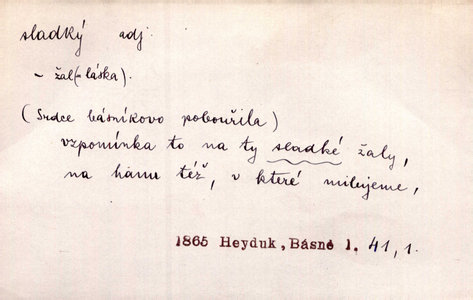 sladký adj.
- žal (= láska).
(Srdce básníkovo pobouřila)
vzpomínka to na ty sladké žaly,
na hanu též, v které milujeme,
1865 Heyduk, Básně 1. 41,1.